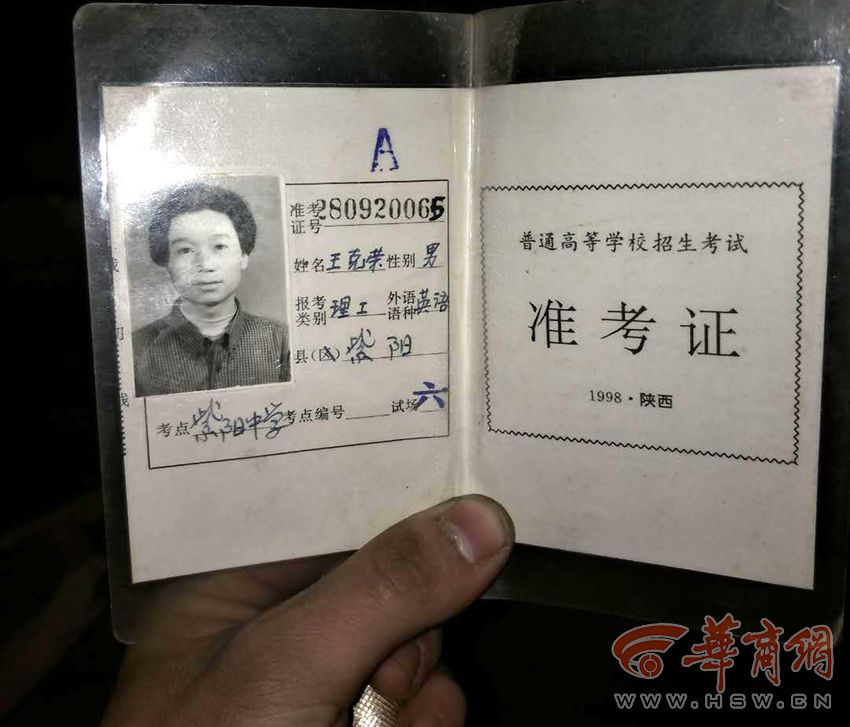 A
准考证号 280920065
姓名 王克荣 性别 男
报考类别 理工 外语语种 英语
县(区) 紫阳
考点 紫阳中学 考点编号 试场 六
线 切 线
普通高等学校招生考试
准考证
1998·陕西
华商网
WWW.HSW.CN